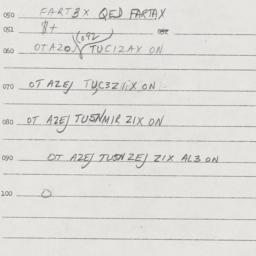 050 FARTBX QED FARTAX
051
060 OTAZO TUC1ZAX ON
070 OT AZEJ ON
080 OT AZEJ TUSNMIR ZIX ON
090 OT AZEJ TUSNZEJ ZIX AL3 ON
100 O